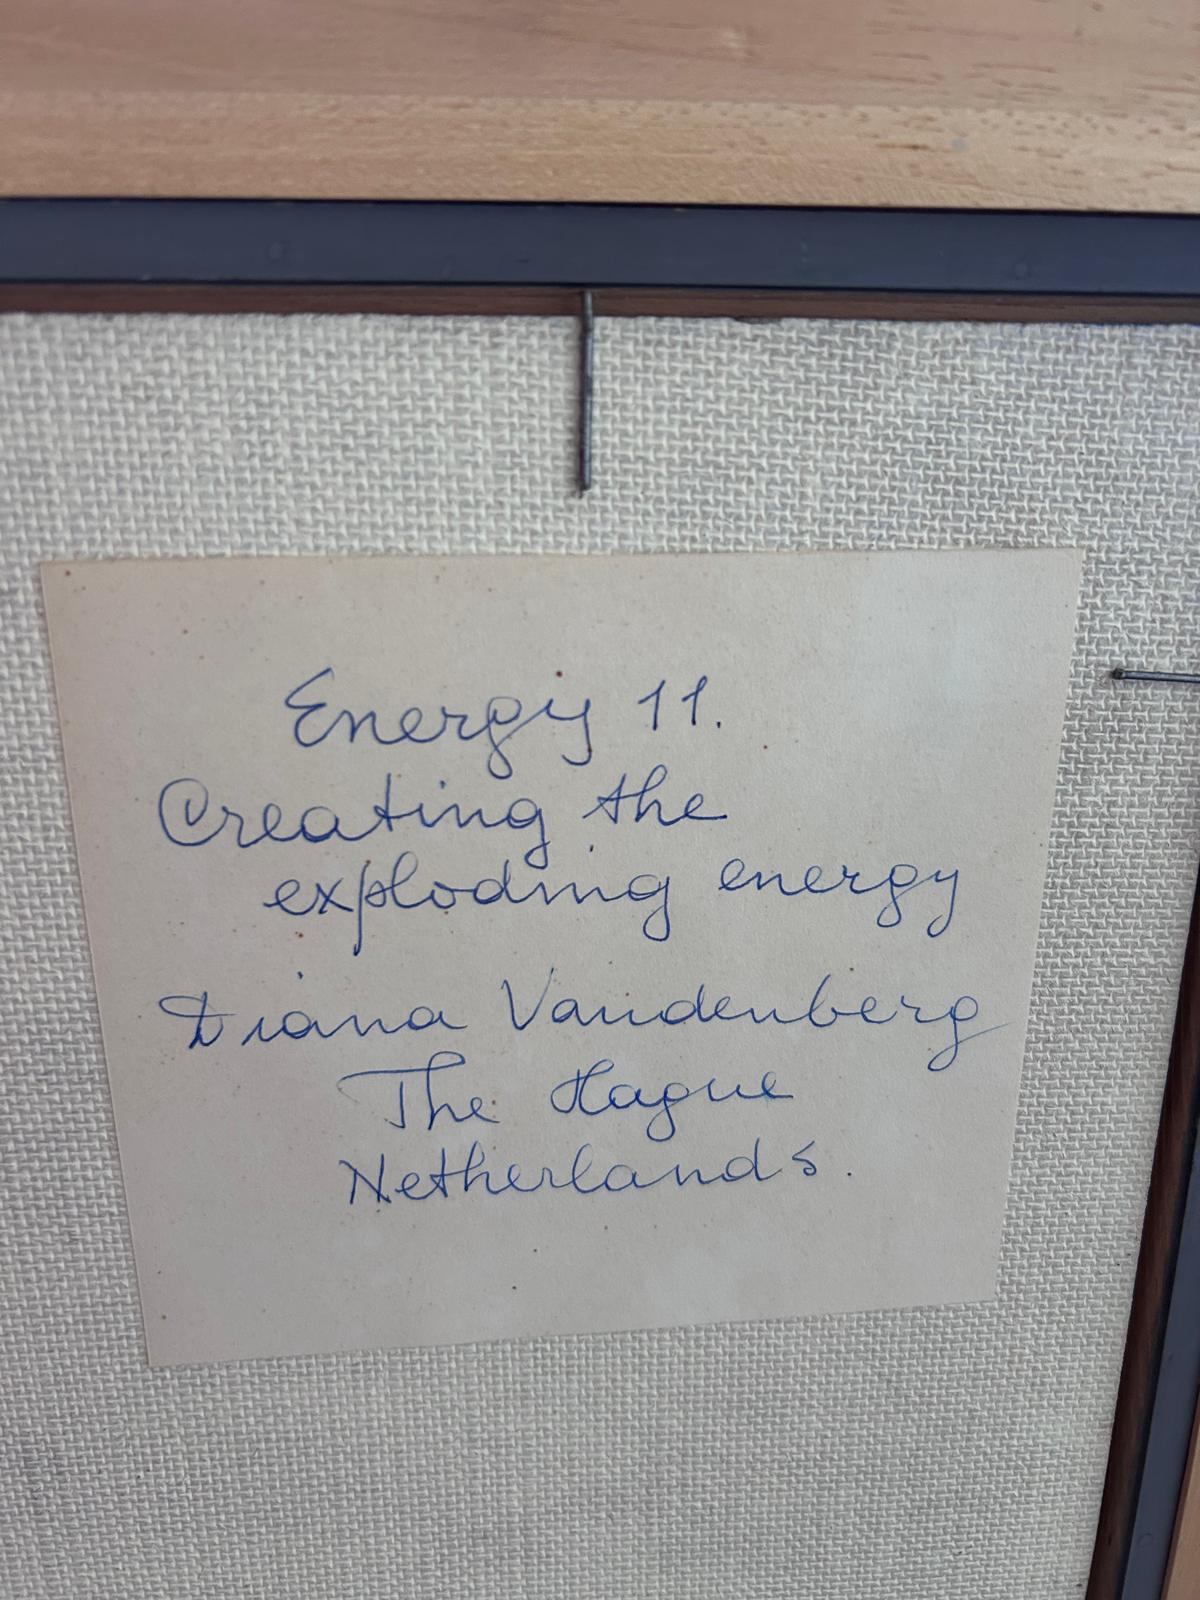 Energy 11.
Creating the
exploding energy
Diana Vandenberg
The Hague
Netherlands.